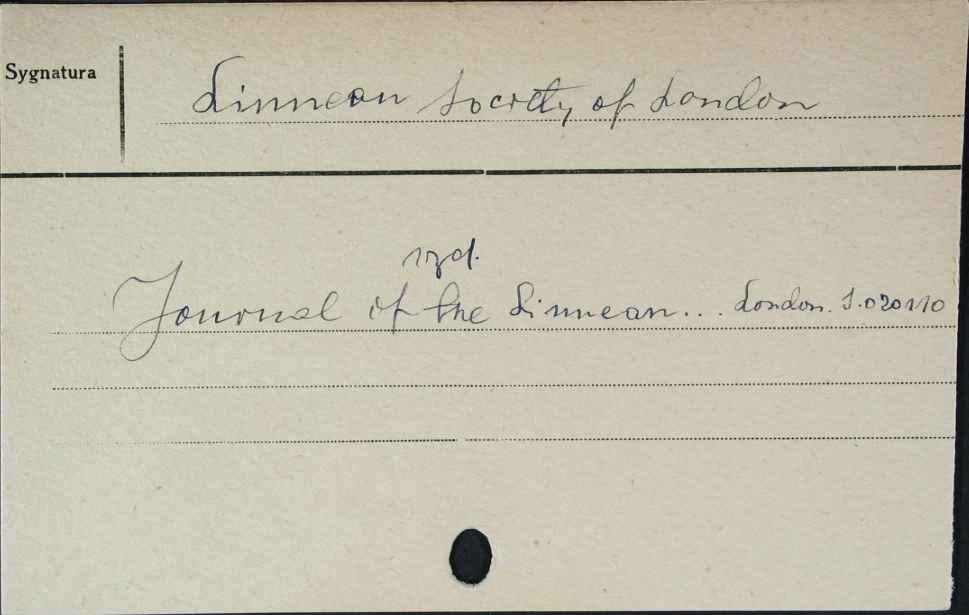 Sygnatura
Linnean Society of London
zob.
Journal of the Linnean... London. S.020110